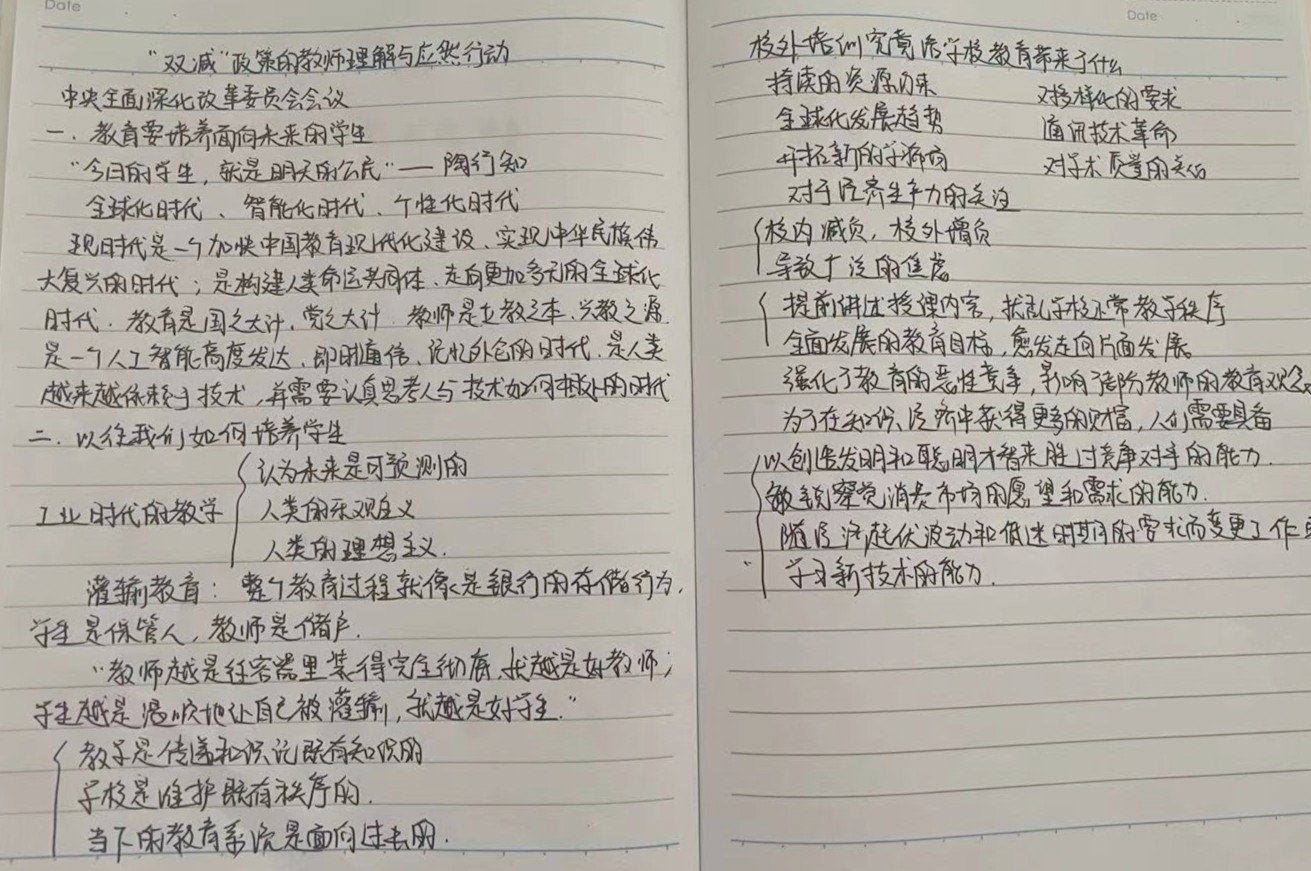 Date
"双减"政策的教师理解与应然行动
中央全面深化改革委员会会议
一、教育要培养面向未来的学生
"今日的学生，就是明天的公民"——陶行知
全球化时代、智能化时代、个性化时代
现时代是一个加快中国教育现代化建设、实现中华民族伟
大复兴的时代；是构建人类命运共同体、走向更加多元的全球化
时代．教育是国之大计，党之大计．教师是立教之本，兴教之源
是一个人工智能高度发达、即时通信、记忆外包的时代，是人类
越来越依赖于技术，并需要认真思考人与技术如何相处的时代
二．以往我们如何培养学生
工业时代的教学
认为未来是可预测的
人类的乐观主义
人类的理想主义．
灌输教育：整个教育过程就像是银行的存储行为，
学生是保管人，教师是储户．
"教师越是往容器里装得完全彻底，就越是好教师；
学生越是温顺地让自己被灌输，就越是好学生."
教学是传递和识记既有知识的
学校是维护既有秩序的．
当下的教育系统是面向过去的．
Date
校外培训究竟给学校教育带来了什么
持续的资源历来 对多样化的要求
全球化发展趋势 通讯技术革命
开拓新的学源市场 对学术质量的关注
对于经济生产力的关注
校内减负，校外增负
导致广泛的焦虑
提前讲述授课内容，扰乱学校正常教学秩序
全面发展的教育目标，愈发走向片面发展
强化了教育的恶性竞争，影响了部分教师的教育观念
为了在知识经济中获得更多的财富，人们需要具备
以创造发明和聪明才智来胜过竞争对手的能力．
敏锐察觉消费市场的愿望和需求的能力．
随经济起伏波动和低迷时期的需求而变更工作
学习新技术的能力．